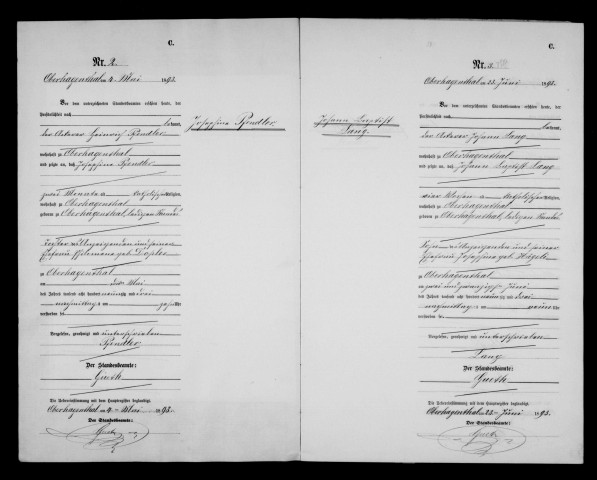 C.
Nr. 2.
Oberhagenthal am 4. Mai 1893.
Vor dem unterzeichneten Standesbeamten erschien heute, der
Persönlichkeit nach
bekannt,
der Ackerer Heinrich Pfendler
wohnhaft zu Oberhagenthal
und zeigte an, daß Josephine Pfendler
zwei Monate alt, katholischer Religion,
wohnhaft zu Oberhagenthal
geboren zu Oberhagenthal, ledigen Standes
Tochter des Anzeigenden und seiner
Ehefrau Philomena geb.
zu Oberhagenthal
am Mai
des Jahres tausend acht hundert neunzig und drei
nachmittags um Uhr
verstorben sei.
Vorgelesen, genehmigt und unterschrieben
Pfendler
Der Standesbeamte:
Gueth
Die Uebereinstimmung mit dem Hauptregister beglaubigt.
Oberhagenthal am 4. Mai 1893.
Der Standesbeamte:
Gueth
Josephine Pfendler.
C.
Nr. 3.
Oberhagenthal am 23. Juni 1893.
Vor dem unterzeichneten Standesbeamten erschien heute, der
Persönlichkeit nach
bekannt,
der Ackerer Johann Lang
wohnhaft zu Oberhagenthal
und zeigte an, daß Johann Baptist Lang
vier Wochen alt, katholischer Religion,
wohnhaft zu Oberhagenthal
geboren zu Oberhagenthal, ledigen Standes
Sohn des Anzeigenden und seiner
Ehefrau Josephine geb.
zu Oberhagenthal
am zwei und zwanzigsten Juni
des Jahres tausend acht hundert neunzig und drei
nachmittags um neun Uhr
verstorben sei.
Vorgelesen, genehmigt und unterschrieben
Lang
Der Standesbeamte:
Gueth
Die Uebereinstimmung mit dem Hauptregister beglaubigt.
Oberhagenthal am 23. Juni 1893.
Der Standesbeamte:
Gueth
Johann Baptist
Lang.